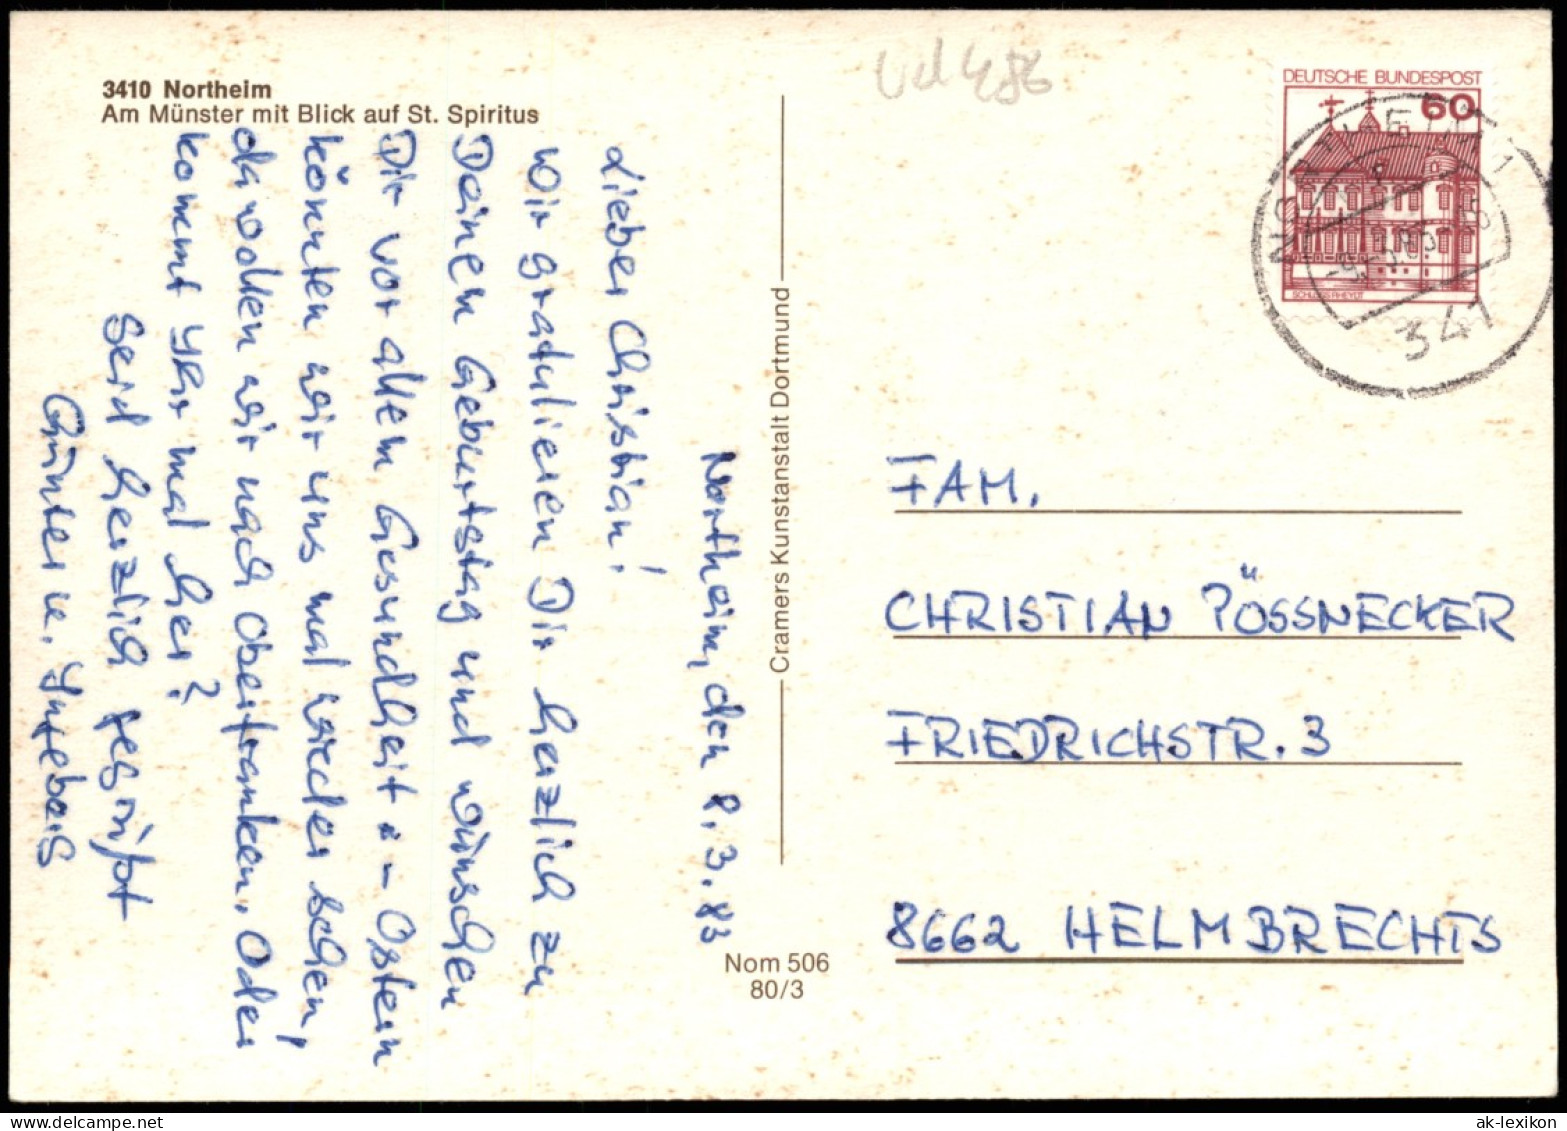 3410 Northeim
Am Münster mit Blick auf St. Spiritus
Northeim, den 8.3.83
Lieber Christian!
Wir gratulieren Dir herzlich zu
Deinem Geburtstag und wünschen
Dir vor allem Gesundheit. – Ostern
könnten wir uns mal wieder sehen,
da wollen wir nach Oberfranken. Oder
kommt Ihr mal her?
Seid herzlich gegrüßt
Günter u. Ingeborg
Cramers Kunstanstalt Dortmund
Nom 506
80/3
DEUTSCHE BUNDESPOST
60
SCHLOSS RHEYDT
NORTHEIM 1
341
FAM.
CHRISTIAN PÖSSNECKER
FRIEDRICHSTR. 3
8662 HELMBRECHTS
ak-lexikon